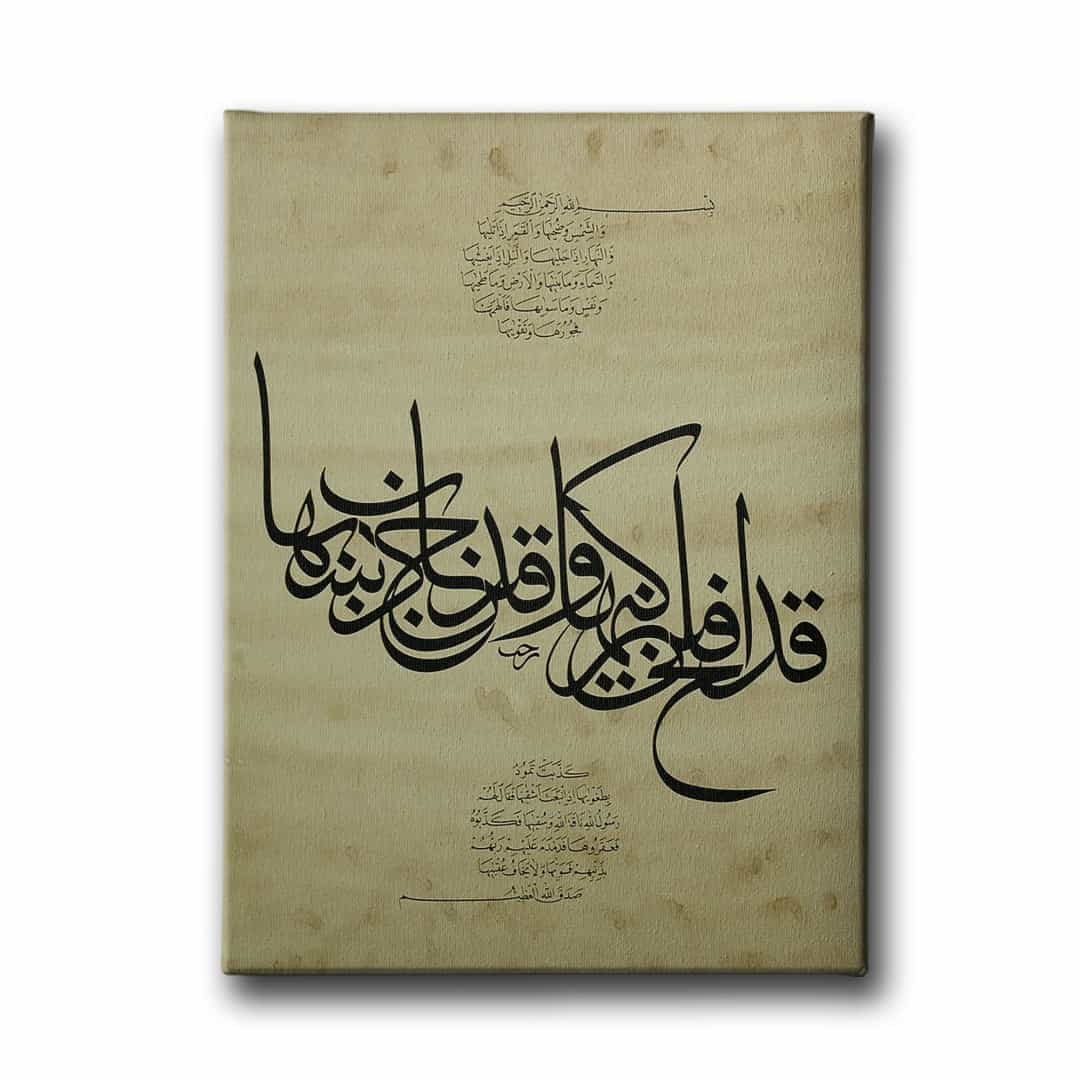 بِسْمِ اللهِ الرَّحْمٰنِ الرَّحِيمِ
وَالشَّمْسِ وَضُحٰيهَا وَالْقَمَرِ اِذَا تَلٰيهَا
وَالنَّهَارِ اِذَا جَلّٰيهَا وَالَّيْلِ اِذَا يَغْشٰيهَا
وَالسَّمَآءِ وَمَا بَنٰيهَا وَالْاَرْضِ وَمَا طَحٰيهَا
وَنَفْسٍ وَمَا سَوّٰيهَا فَاَلْهَمَهَا
فُجُورَهَا وَتَقْوٰيهَا
قد افلح من زكيها وقد خاب من دسيها
كَذَّبَتْ ثَمُودُ
بِطَغْوٰيهَا اِذِ انْبَعَثَ اَشْقٰيهَا فَقَالَ لَهُمْ
رَسُولُ اللهِ نَاقَةَ اللهِ وَسُقْيٰهَا فَكَذَّبُوهُ
فَعَقَرُوهَا فَدَمْدَمَ عَلَيْهِمْ رَبُّهُمْ
بِذَنْبِهِمْ فَسَوّٰيهَا وَلَا يَخَافُ عُقْبٰيهَا
صَدَقَ اللهُ الْعَظِيمُ